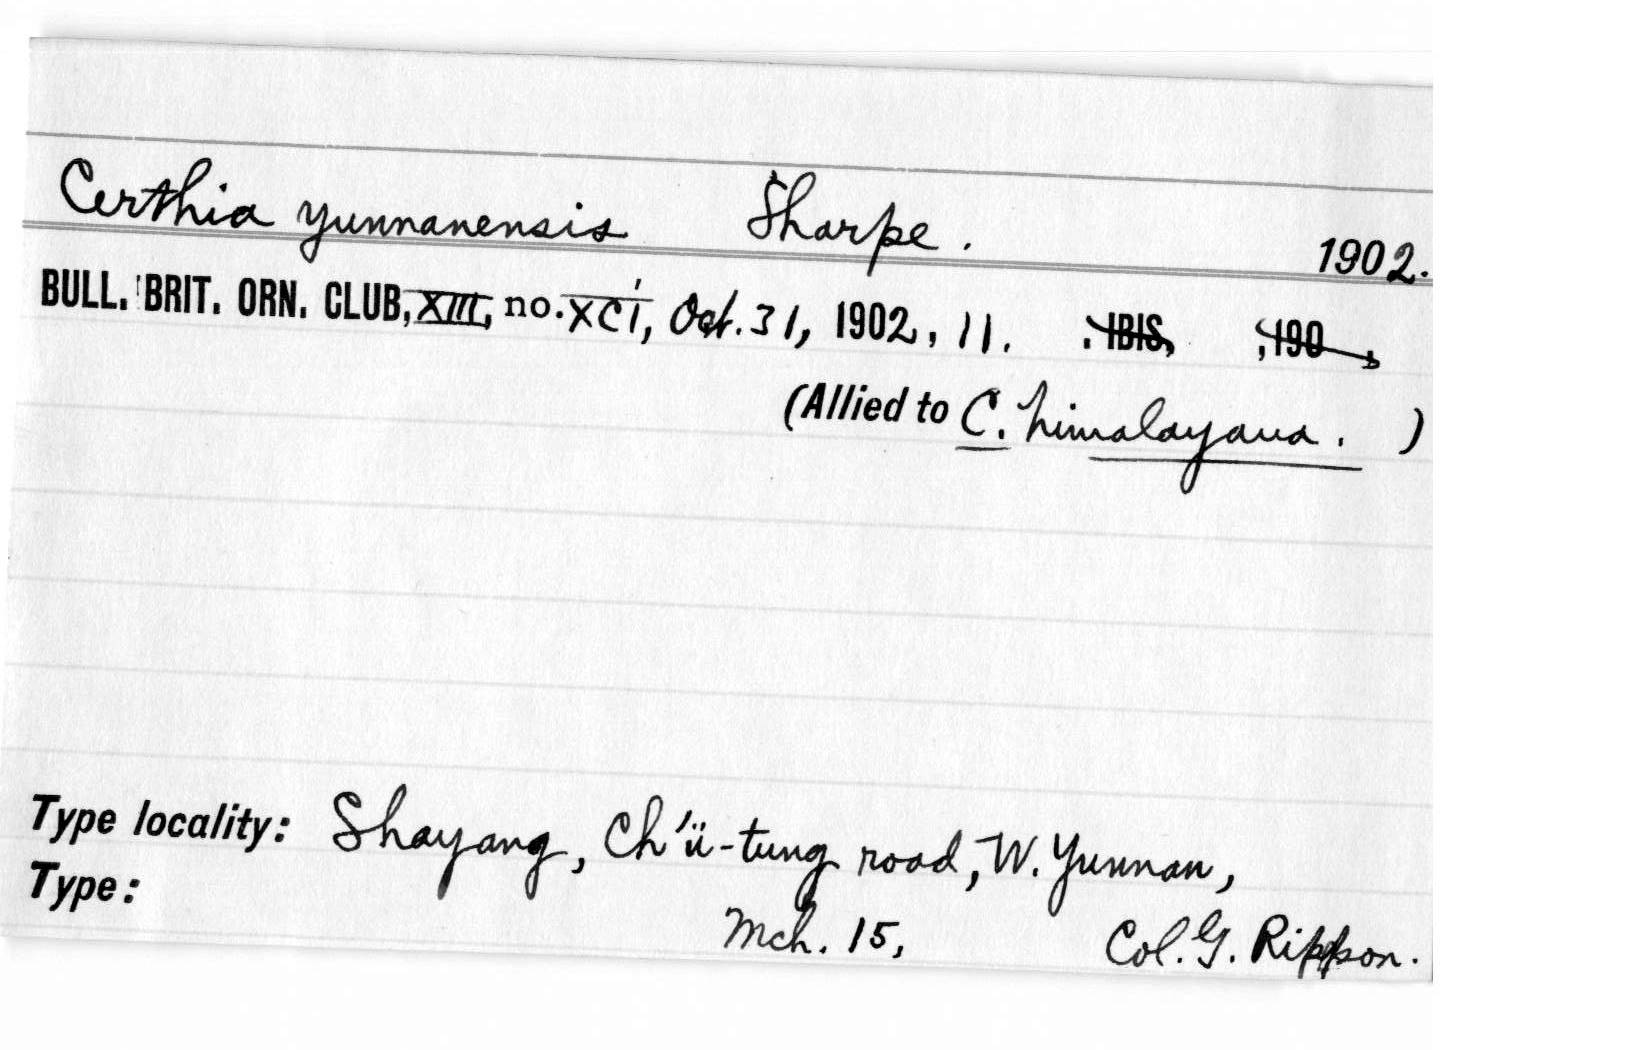 Certhia yunnanensis Sharpe. 1902.
BULL. BRIT. ORN. CLUB, XIII, no. XCI, Oct. 31, 1902, 11. . IBIS, , 190 ,
(Allied to C. himalayana. )
Type locality: Shayang, Ch'ü-tung road, W. Yunnan,
Type: Mch. 15, Col. G. Rippon.